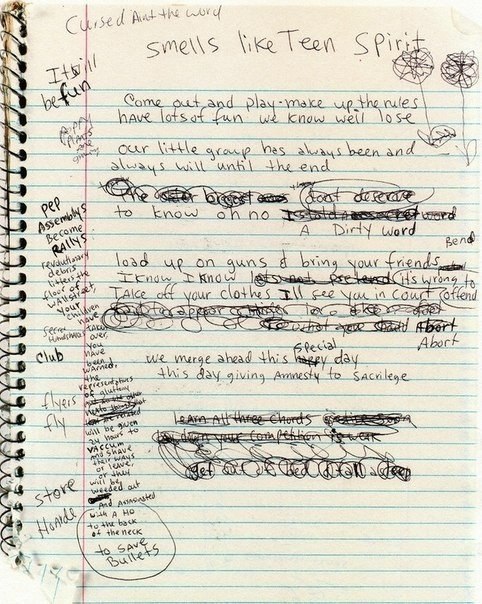 Cursed Aint the word
Smells like Teen Spirit
It will
be fun
Come out and play-make up the rules
Have lots of fun we know we'll lose
our little group has always been and
always will until the end
The biggest dont deserve
to know oh no word
A Dirty word
Bend
load up on guns & bring your friends
I know I know lets not pretend its wrong to
TAke off your clothes Ill see you in court offend
to what you Abort
Abort
special
we merge ahead this happy day
this day giving Amnesty to Sacrilege
Learn All three chords
your competition is weak
get out
pep
Assemblys
Become
RAllys
revolutionary
debris
litters the
floor of
wallstreet.
your
children
have
taken
over,
you
have
been
warned.
the
representatives
of gluttony
will be given
24 hours to
VACCUM
and Shave
their ways
or leave.
or they
will be
weeded out
And Assasinated
with A Ho
to the back
of the neck
to save
Bullets
Secret
Handshake
Club
flyers
fly
store